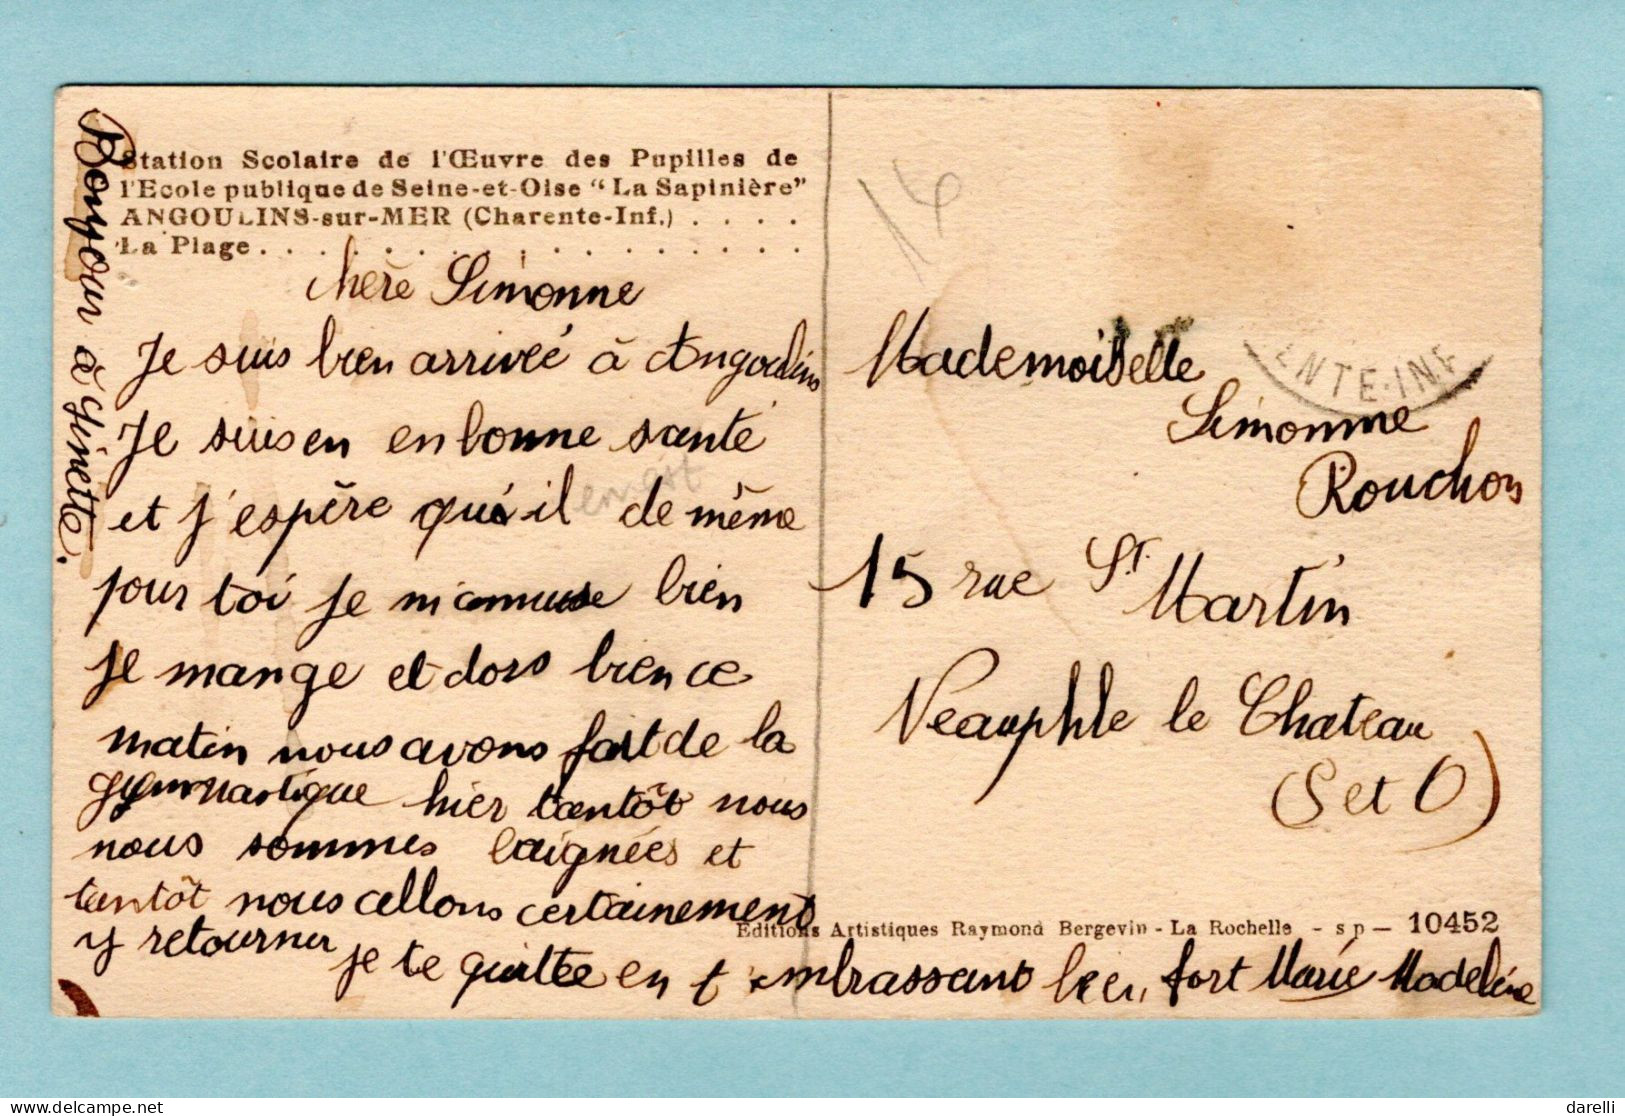 Station Scolaire de l'Œuvre des Pupilles de
l'Ecole publique de Seine-et-Oise "La Sapinière"
ANGOULINS-sur-MER (Charente-Inf.) . . . .
La Plage . . . . . . . . . . . . . . . . .
Bonjour à ginette.
chère Simonne
Je suis bien arriveé à Angoulins
Je suis en en bonne santé
et j'espère qu'il en est de même
pour toi je m'amuse bien
je mange et dors bien ce
matin nous avons fait de la
gymnastique hier tantôt nous
nous sommes baignées et
tantôt nous allons certainement
y retourner
je te quitte en t'embrassant bien fort Marie Madeleine
15
Mademoiselle
Simonne
Rouchon
15 rue St. Martin
Neauphle le Chateau
(S et O)
ENTE-INF
Editions Artistiques Raymond Bergevin - La Rochelle - sp - 10452
darelli